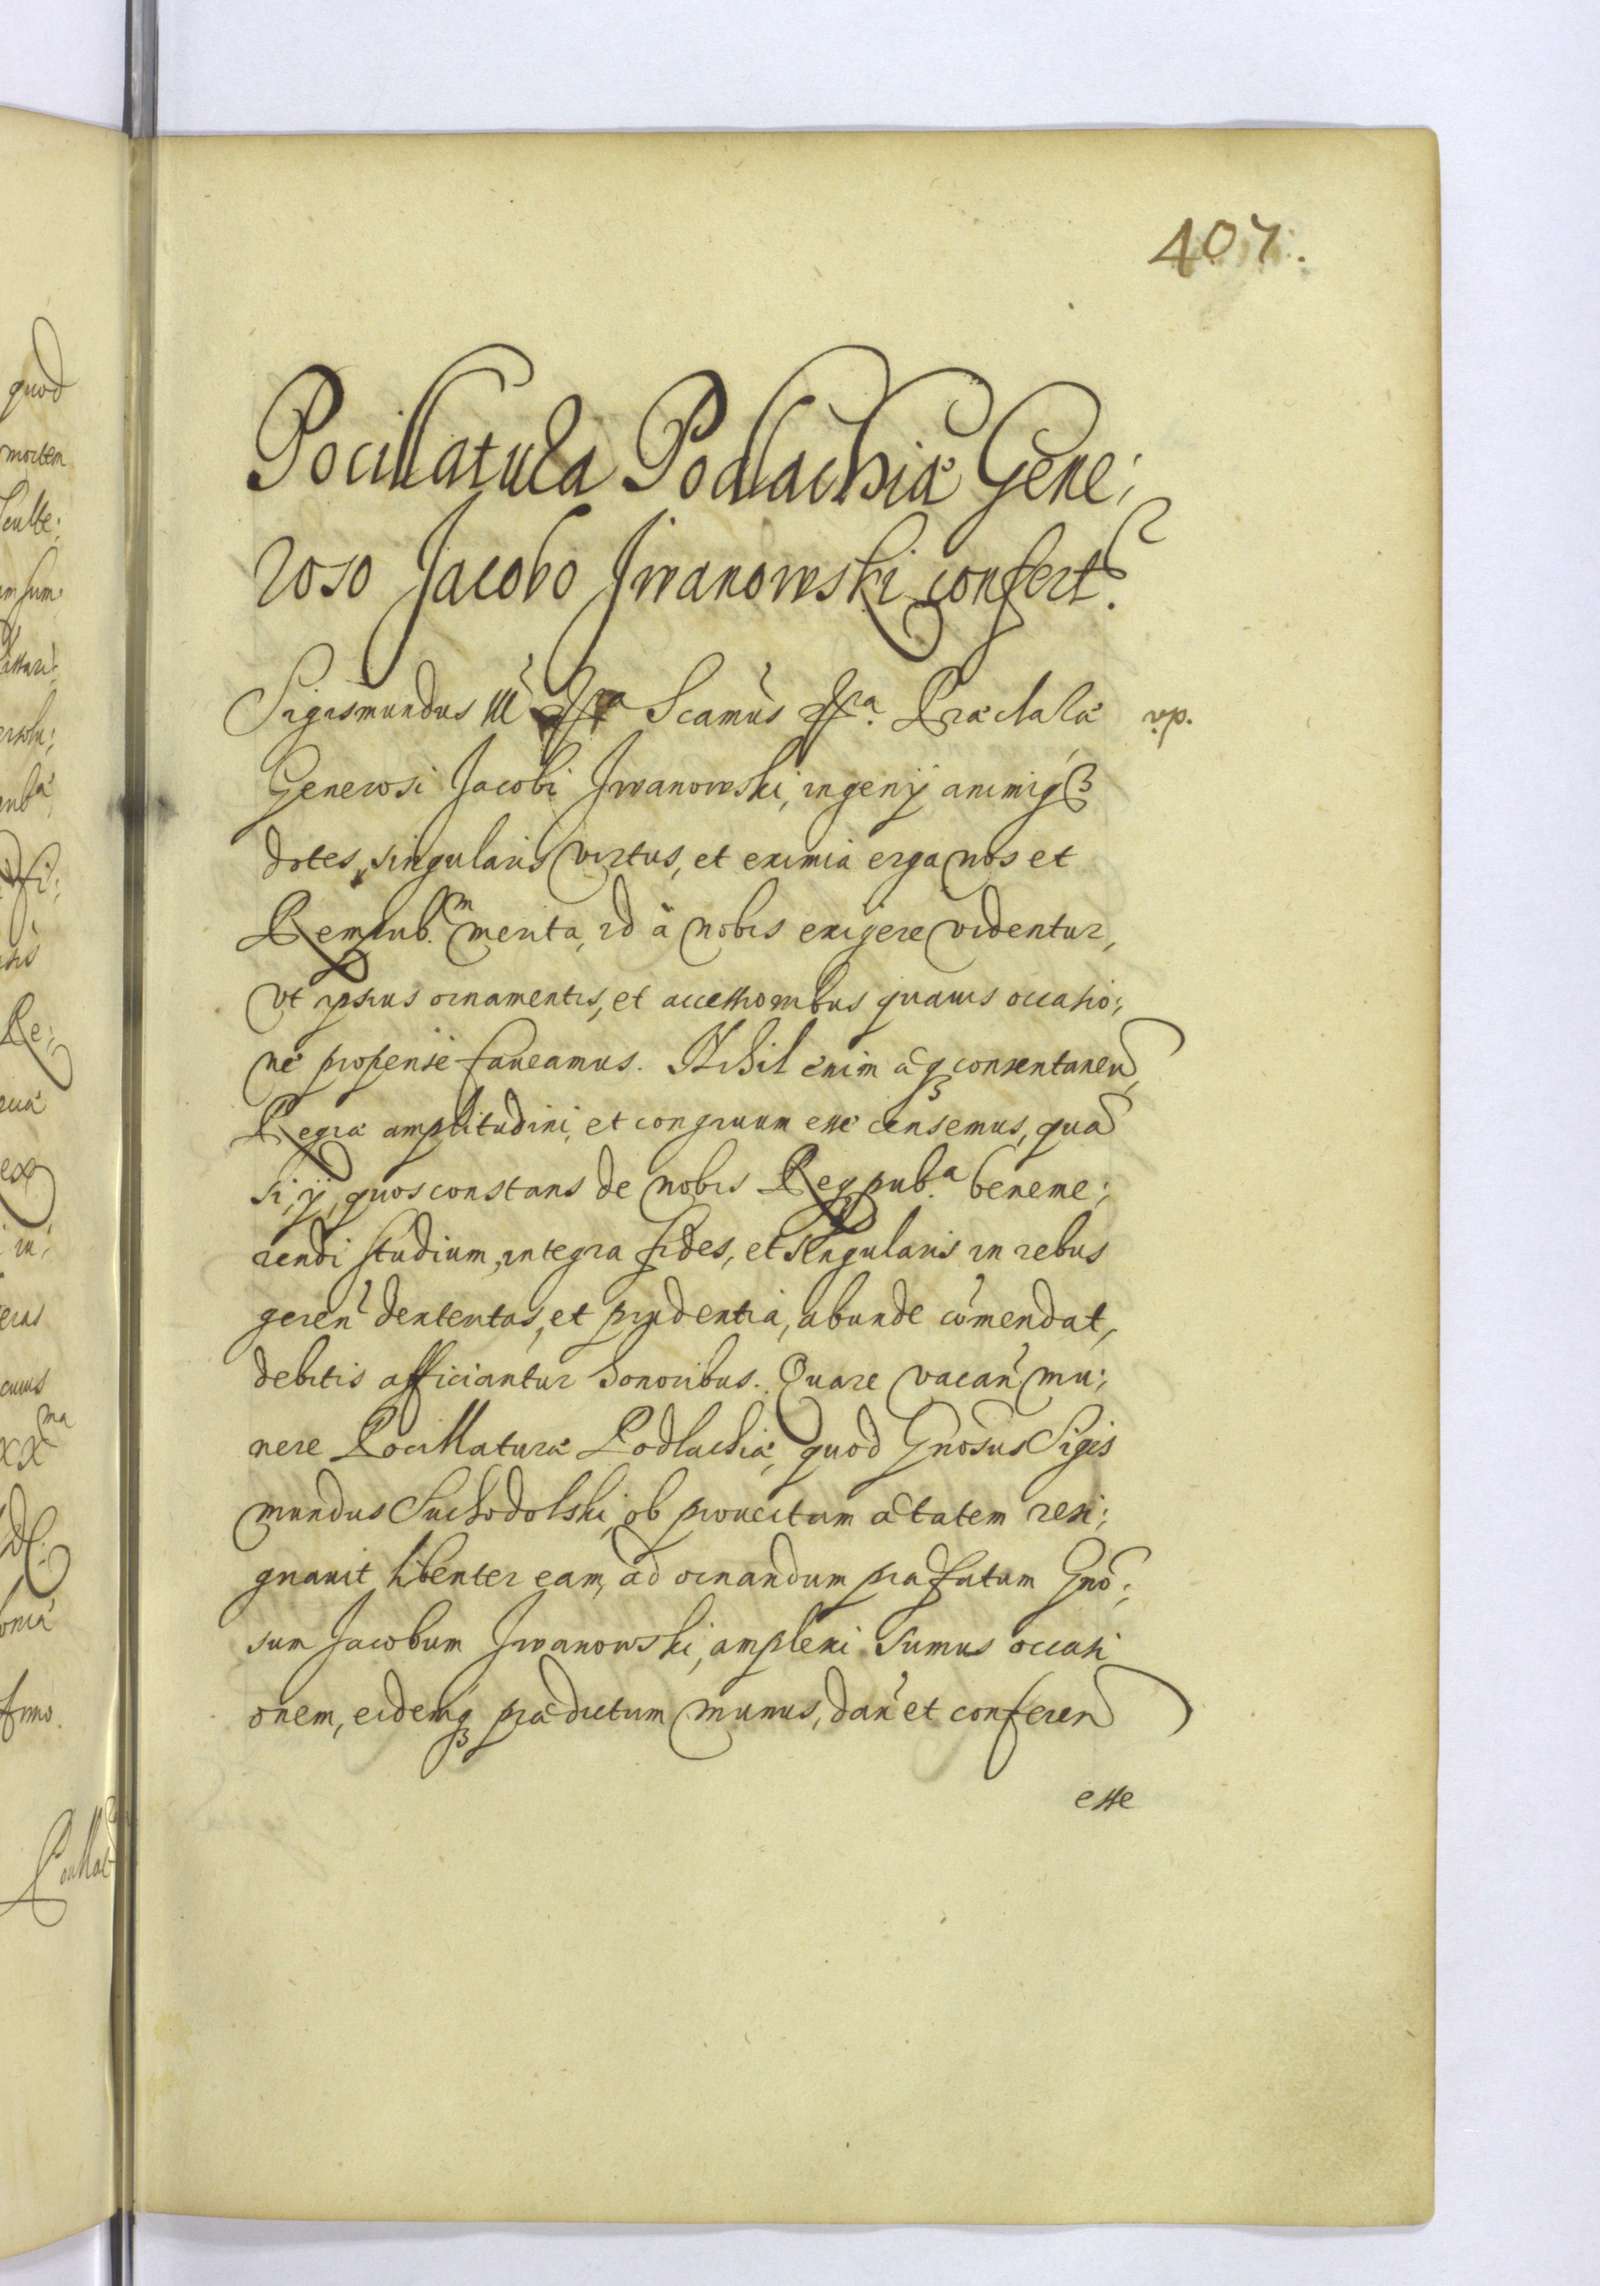 407.
Pocillatura Podlachiæ Gene;
roso Jacobo Jwanowski confert.
Sigismundus III Scamus Præclaræ
vp.
Generosi Jacobi Jwanowski, ingenij animiq3
dotes, singularis virtus, et eximia erga nos et
Rempub.m merita, id à nobis exigere videntur,
vt ipsius ornamentis, et accessionibus quauis occasio;
ne propense faueamus. Nihil enim æq3 consentaneu
Regiæ amplitudini, et congruum esse censemus, qua
si, ij, quos constans de nobis Reqpub.a beneme;
rendi studium, integra fides, et singularis in rebus
geren dexteritas, et prudentia, abunde comendat,
debitis afficiantur honoribus. Quare vacan mu;
nere Pocillaturæ Podlachiæ, quod Gnosus Sigis
mundus Suchodolski, ob prouectam ætatem resi;
gnauit libenter eam, ad ornandum præfatum Gno;
sum Jacobum Jwanowski, amplexi sumus occasi
onem, eidemq3 prædictum munus, dan et conferen
esse
quod
mortem